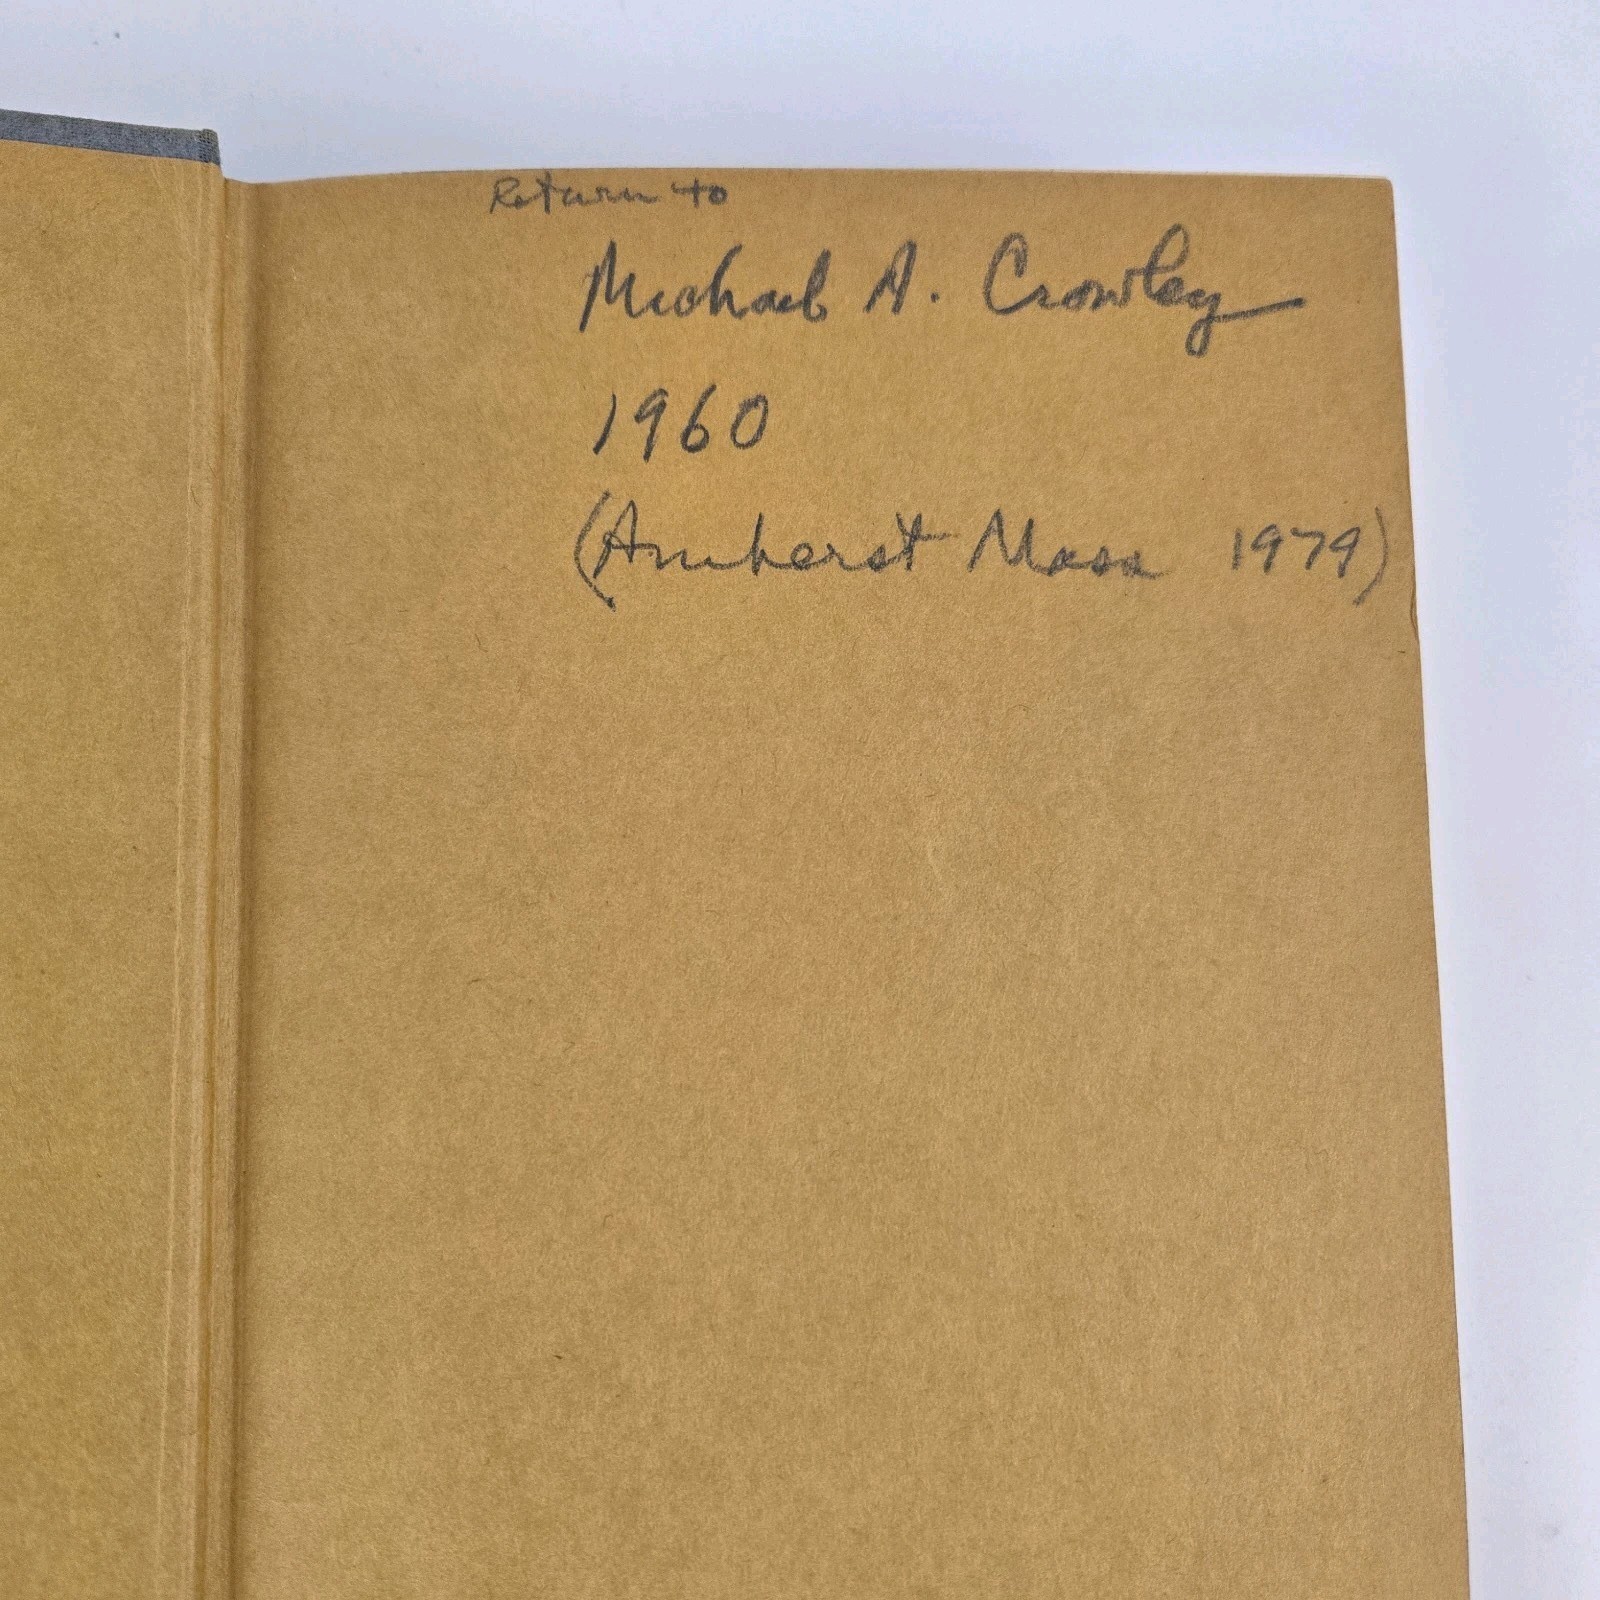 Return to
Michael A. Crowley
1960
(Amherst Mass 1979)